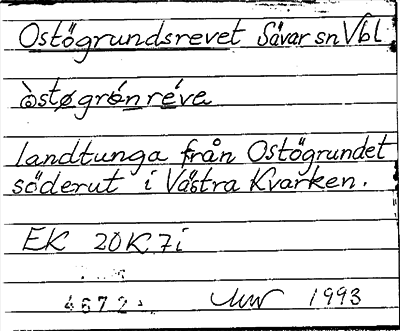 Ostögrundsrevet Sävar sn Vbl
òstøgrónréva
landtunga från Ostögrundet
söderut i Västra Kvarken.
EK 20K 7i
4672
1993